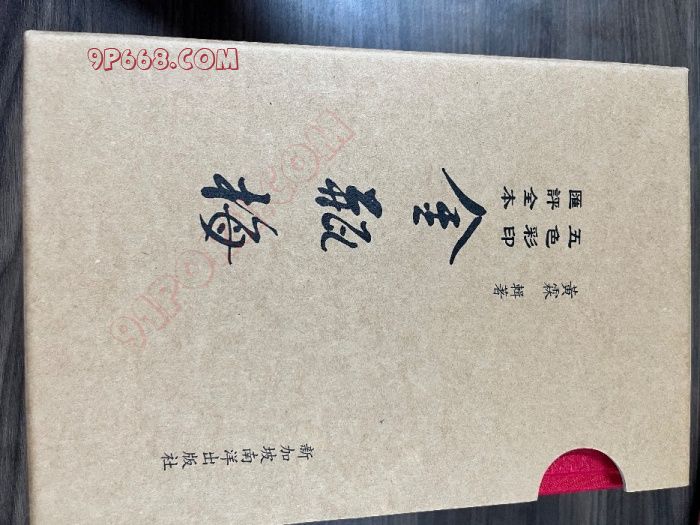 五色彩印
匯評全本
金瓶梅
黃霖 輯著
新加坡南洋出版社
9P668.COM